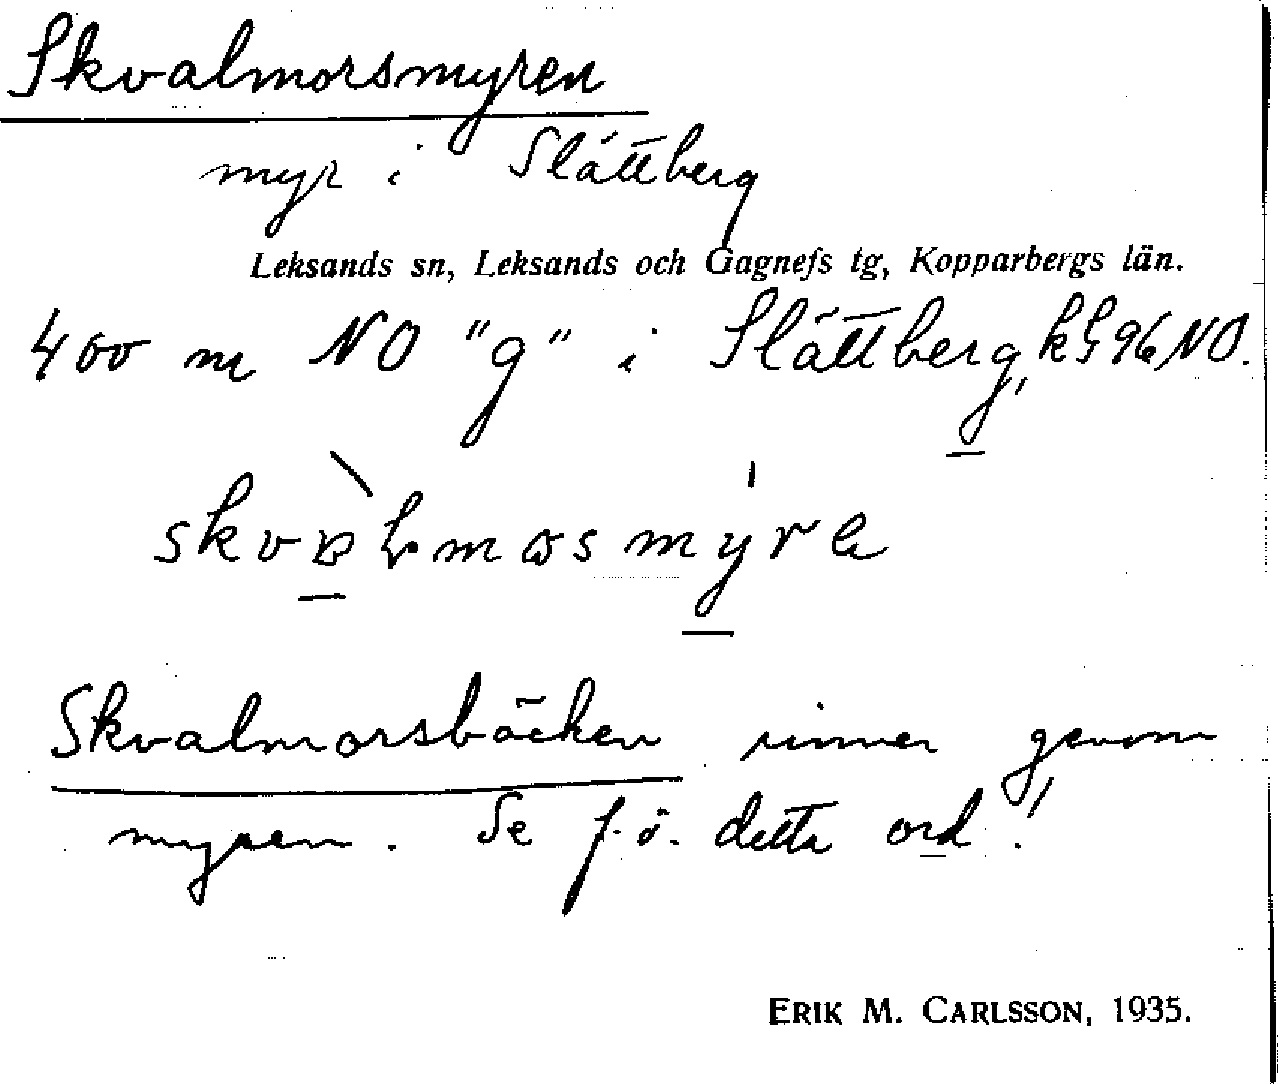 Skvalmorsmyren
myr i Slättberg
Leksands sn, Leksands och Gagnefs tg, Kopparbergs län.
400 m NO "g" i Slättberg, kbl 96 NO.
Skvalmorsbäcken rinner genom
myren. Se f. ö. detta ord!
ERIK M. CARLSSON, 1935.